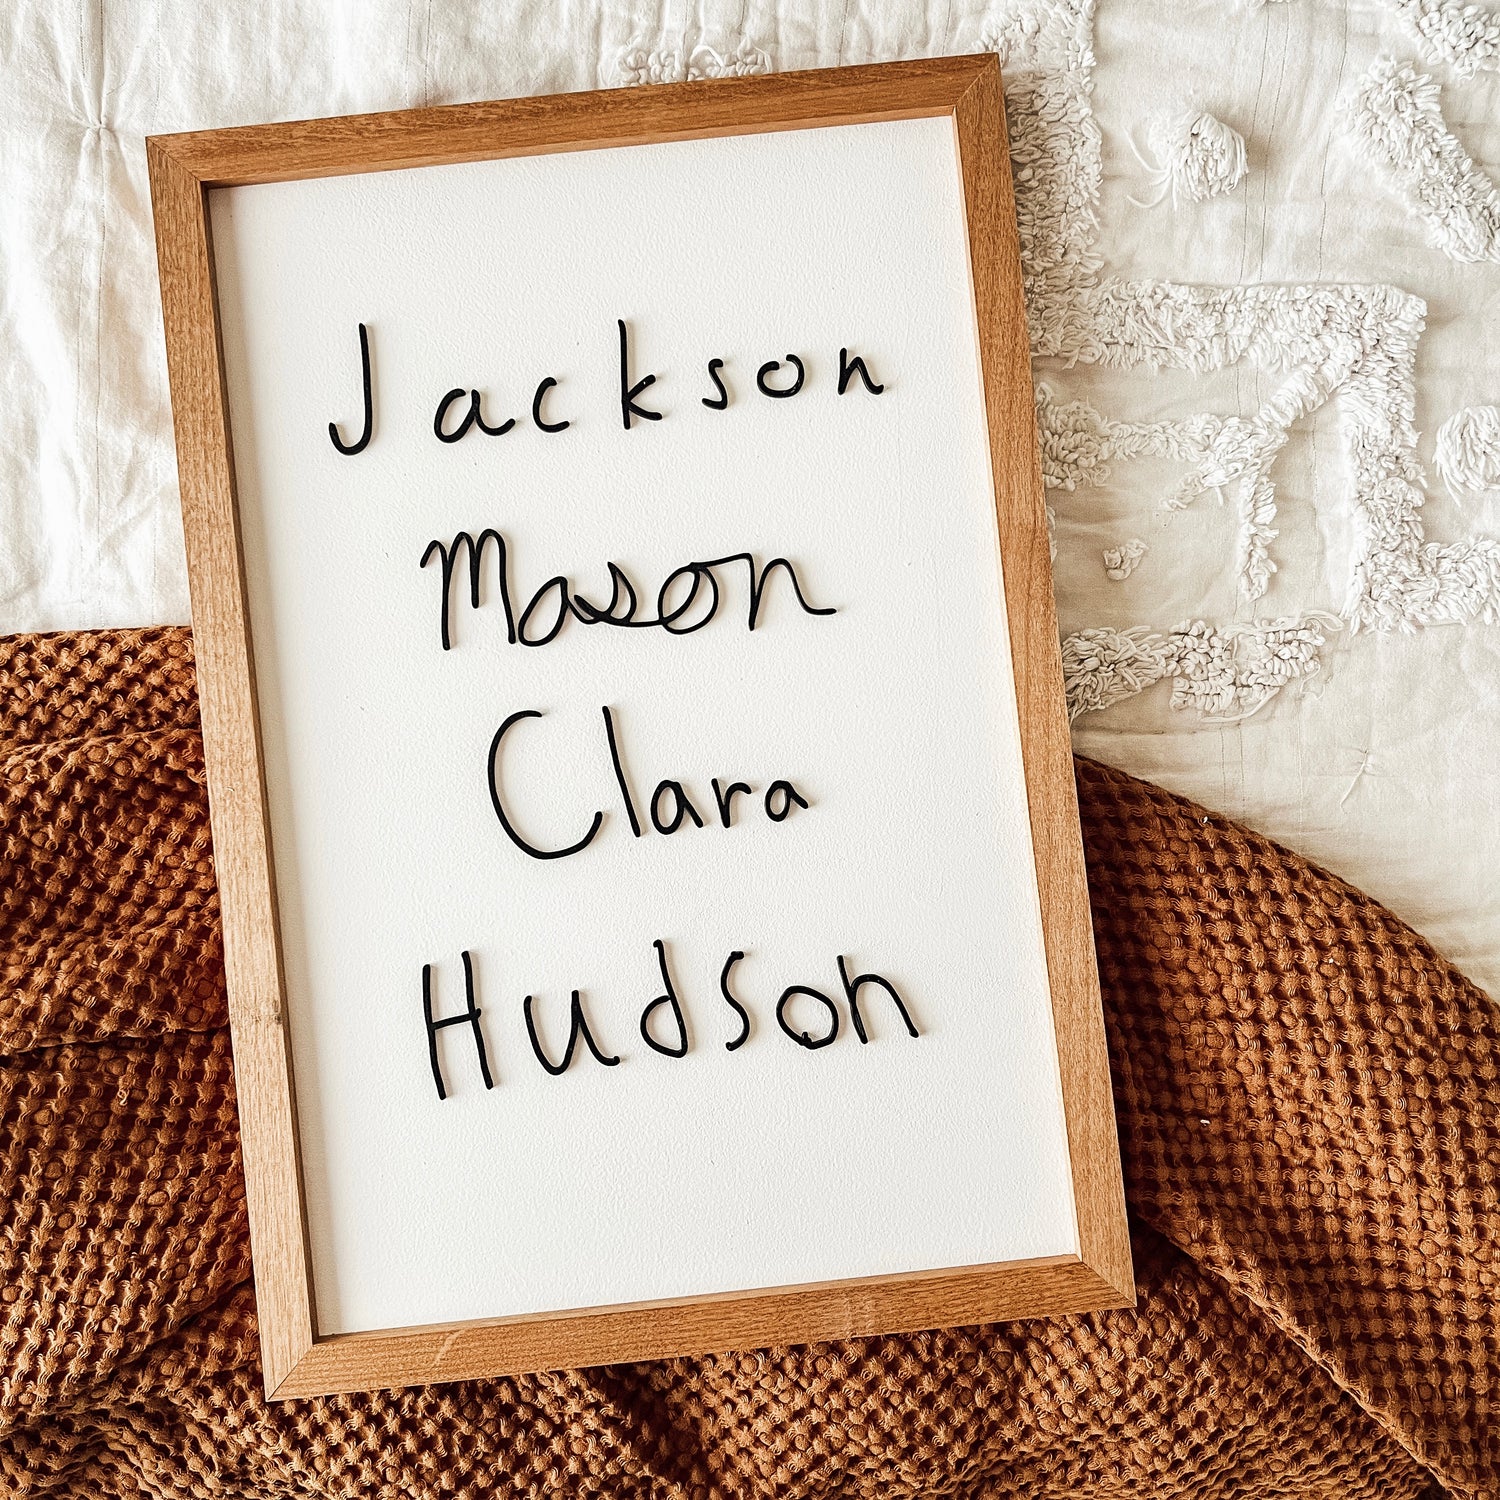 Jackson
Mason
Clara
Hudson